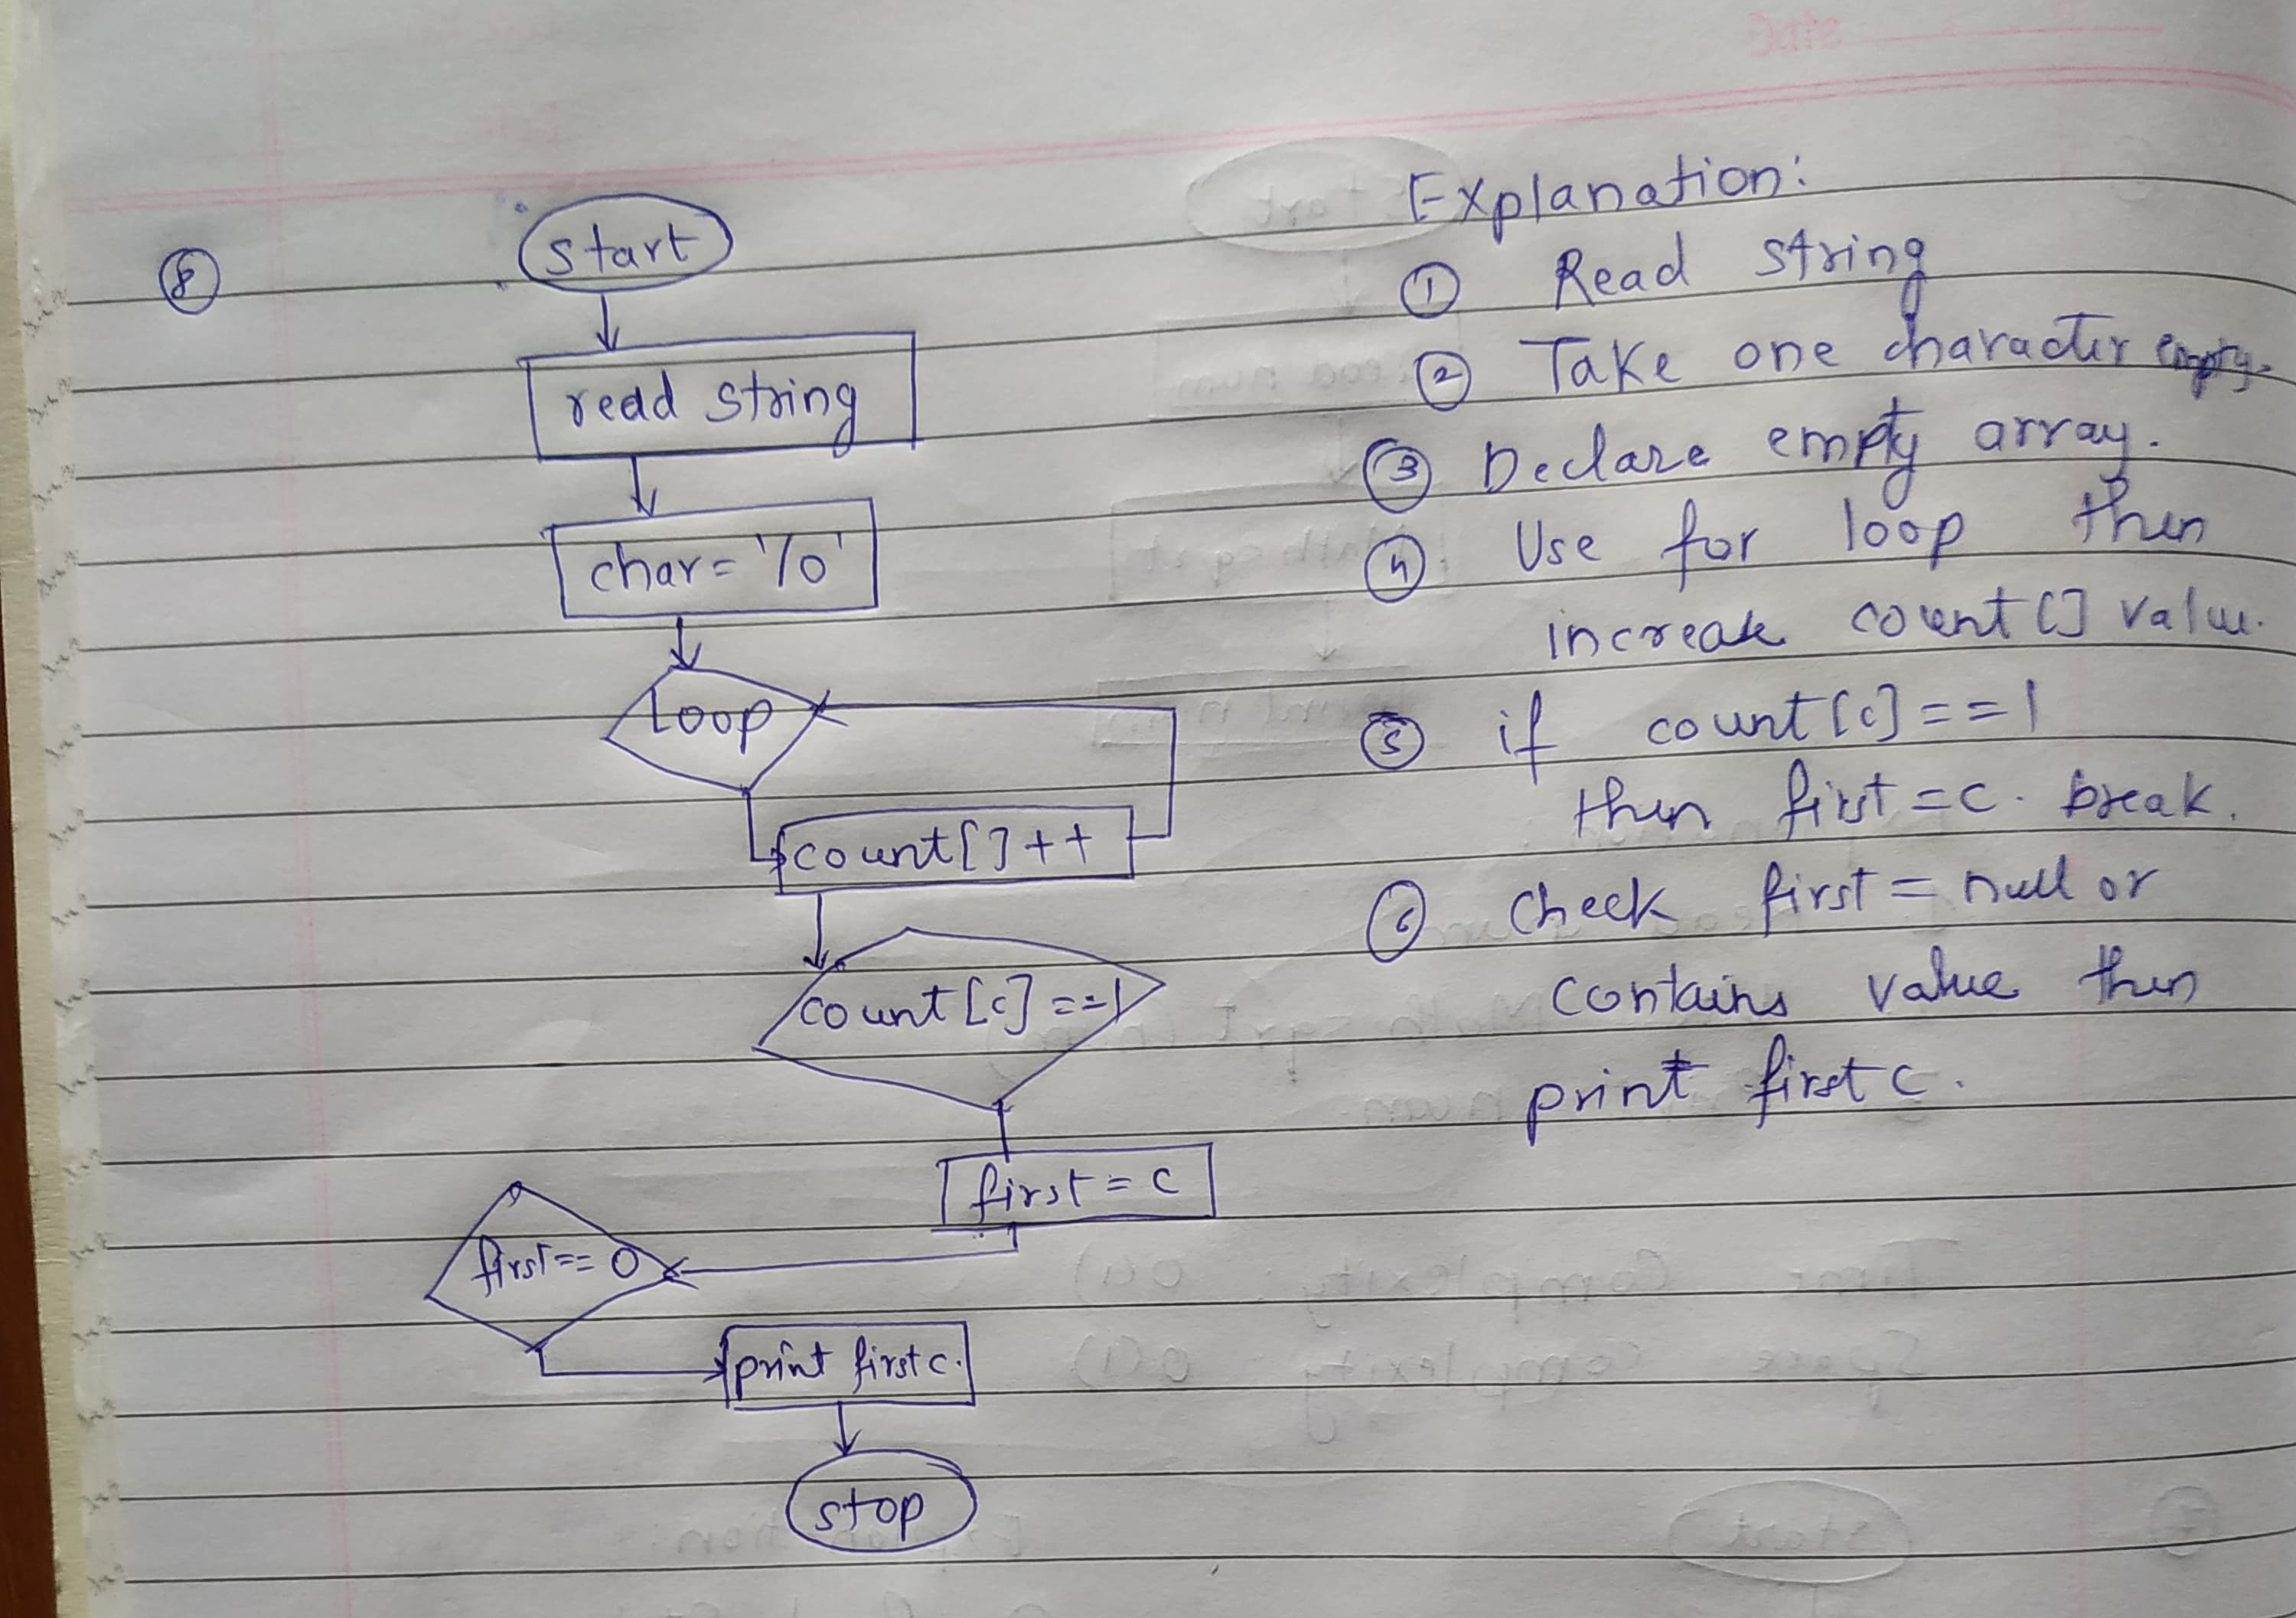 8
start
read string
char = '/0'
loop
count[]++
count[c]==1
first = c
first == 0
print first c.
stop
Explanation:
1 Read string
2 Take one character empty.
3 Declare empty array.
4 Use for loop then
increase count[] value.
5 if count[c]==1
then first = c. break.
6 check first = null or
contains value then
print first c.